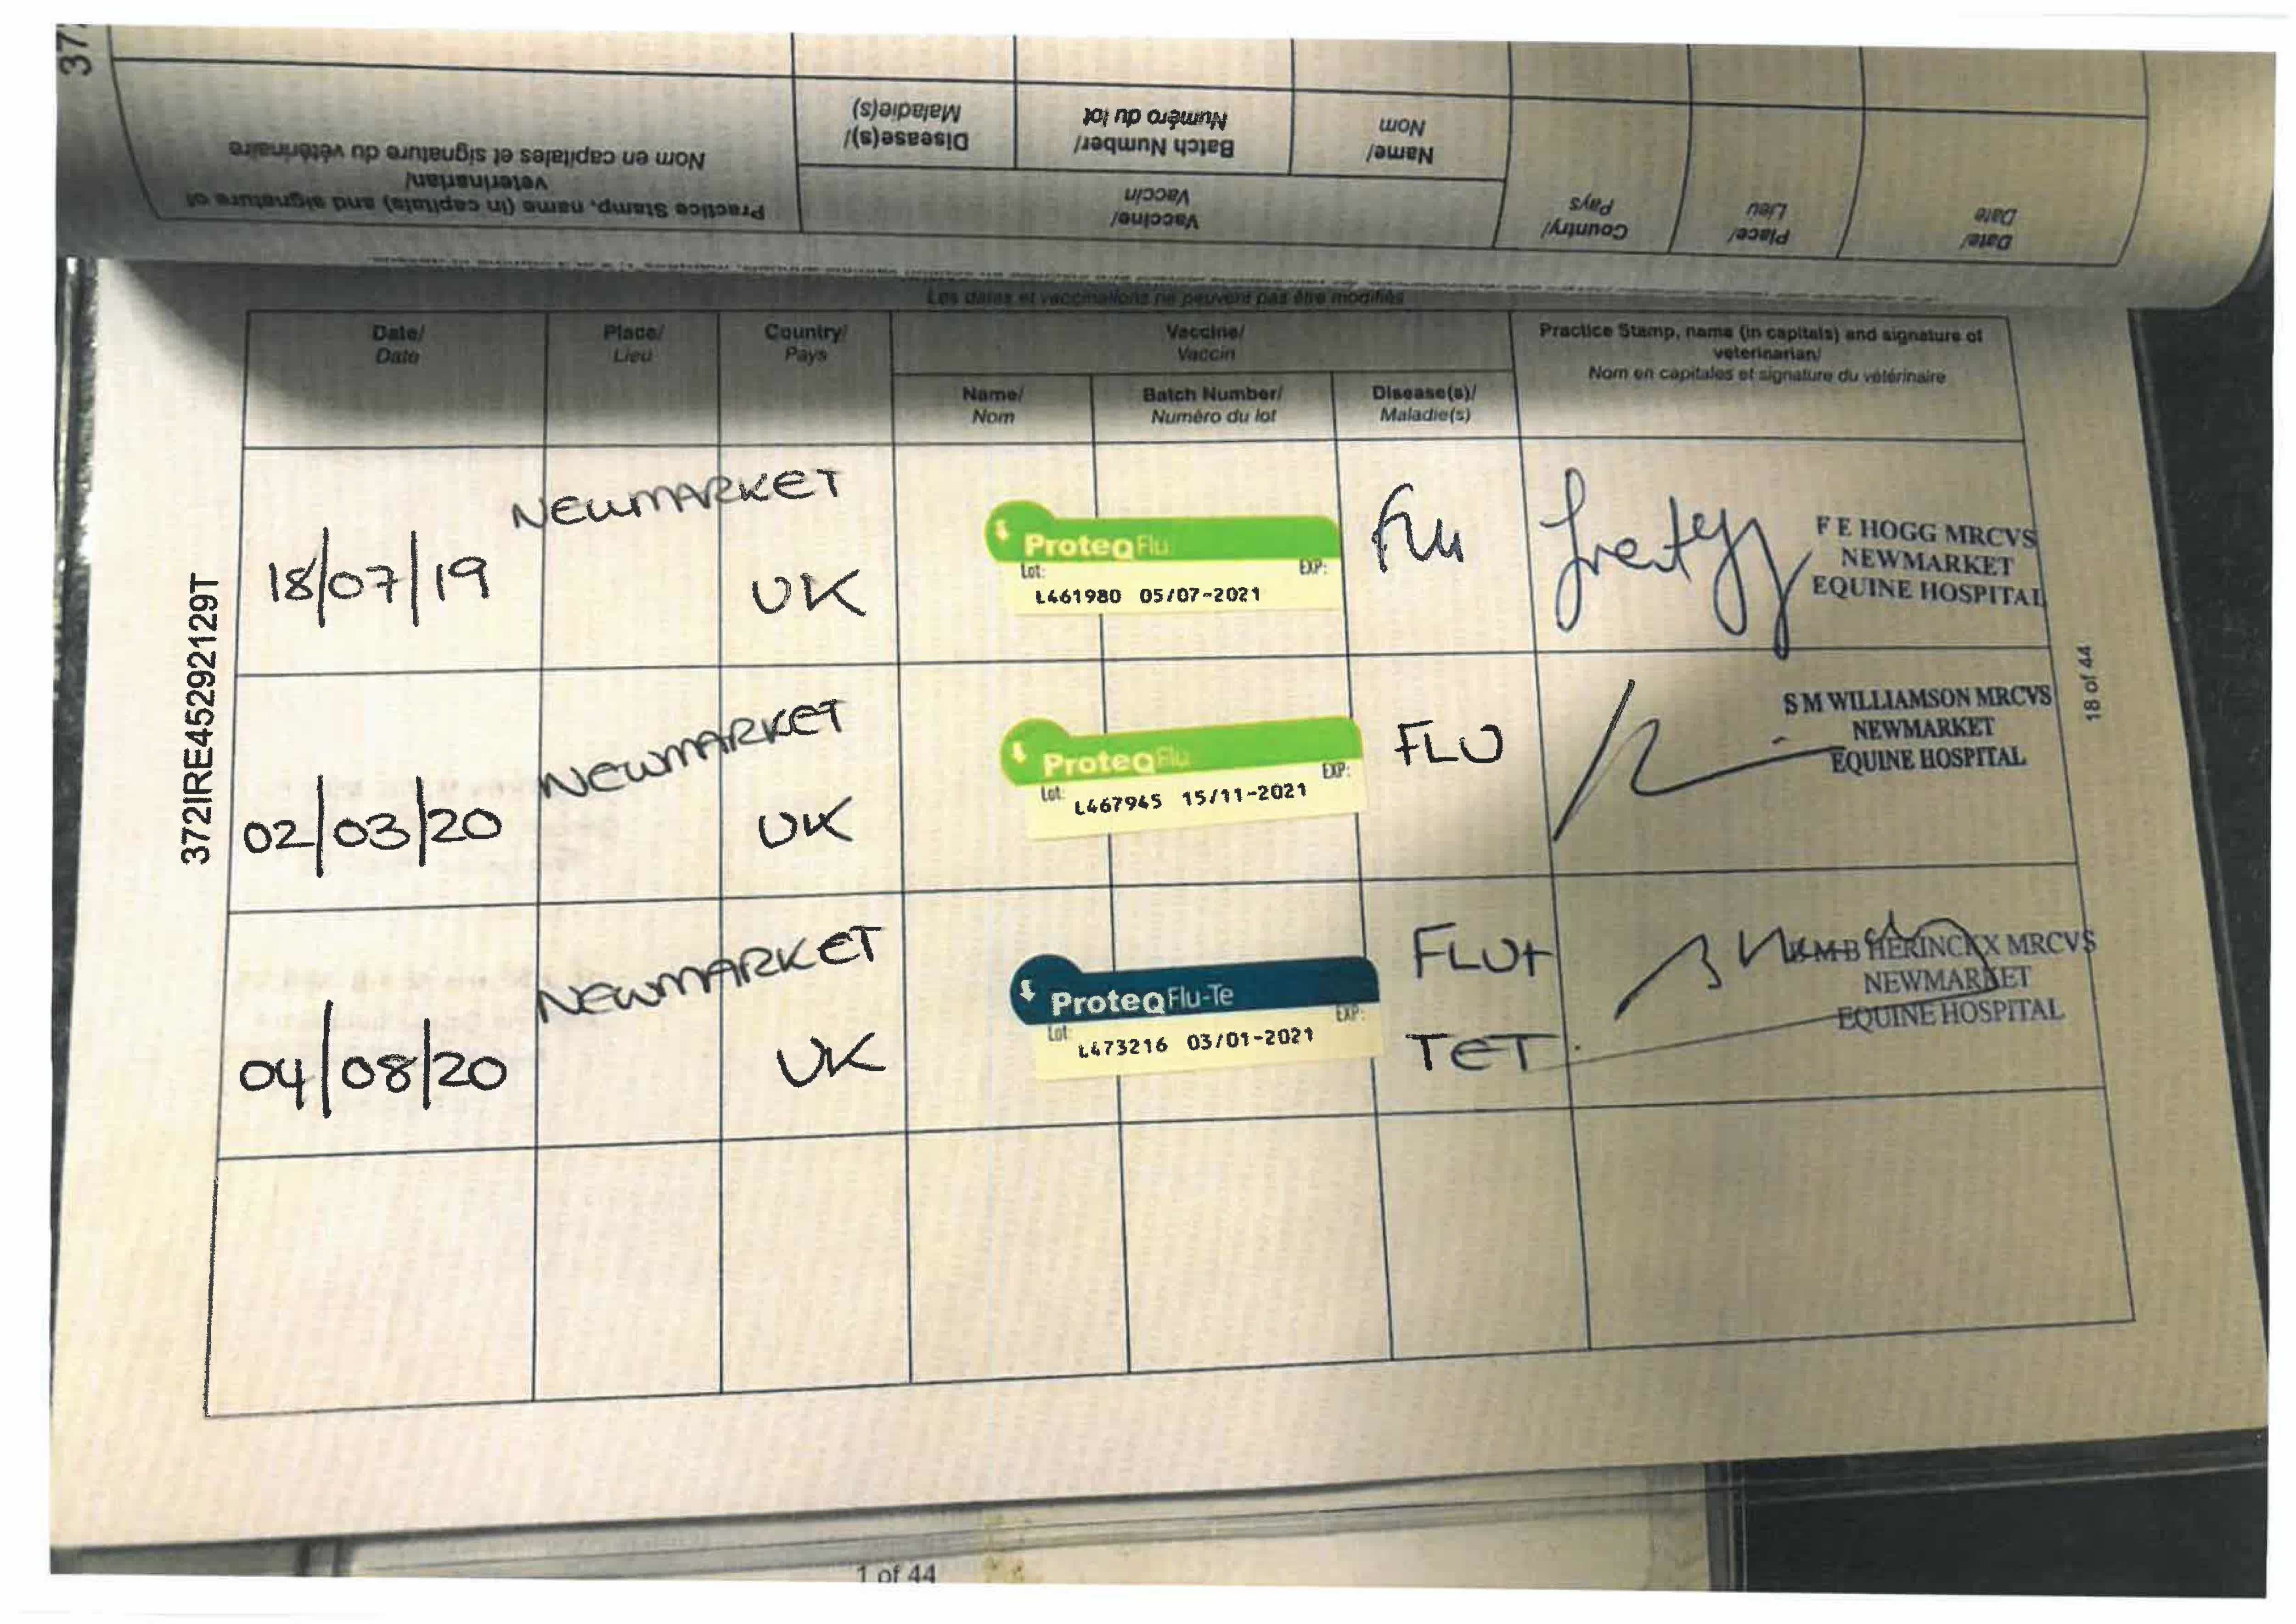 37
Practice Stamp, name (in capitals) and signature of
veterinarian/
Nom en capitales et signature du vétérinaire
Vaccine/
Vaccin
Disease(s)/
Maladie(s)
Batch Number/
Numéro du lot
Name/
Nom
Country/
Pays
Place/
Lieu
Date/
Date
Les dates et vaccinations ne peuvent pas être modifiés
Date/
Date
Place/
Lieu
Country/
Pays
Vaccine/
Vaccin
Name/
Nom
Batch Number/
Numéro du lot
Disease(s)/
Maladie(s)
Practice Stamp, name (in capitals) and signature of
veterinarian/
Nom en capitales et signature du vétérinaire
18/07/19
NEWMARKET
UK
ProteqFlu
Lot: EXP:
L461980 05/07-2021
Flu
F E HOGG MRCVS
NEWMARKET
EQUINE HOSPITAL
02/03/20
NEWMARKET
UK
ProteqFlu
Lot: EXP:
L467945 15/11-2021
FLU
S M WILLIAMSON MRCVS
NEWMARKET
EQUINE HOSPITAL
04/08/20
NEWMARKET
UK
ProteqFlu-Te
Lot: EXP:
L473216 03/01-2021
FLU+
TET
M B HERINCKX MRCVS
NEWMARKET
EQUINE HOSPITAL
372IRE45292129T
18 of 44
1 of 44